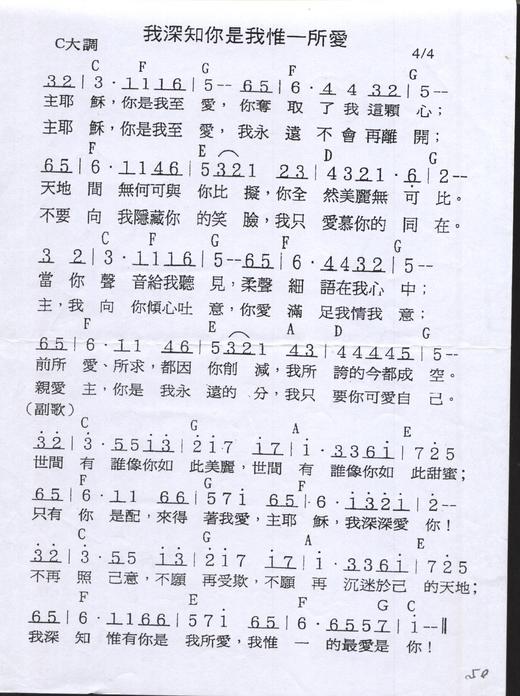 我深知你是我惟一所愛
C大調 4/4
C F G F G
3 2 | 3 · 1 1 1 6 | 5 -- 6 5 | 6 · 4 4 3 2 | 5 --
主耶 穌，你是我至 愛，你奪 取了我這顆 心；
主耶 穌，你是我至 愛，我永 遠 不 會再離 開；
F E D G
6 5 | 6 · 1 1 4 6 | 5 3 2 1 2 3 | 4 3 2 1 · 6 | 2 --
天地 間 無何可與 你比 擬，你全 然美麗無 可 比。
不要 向 我隱藏你 的笑 臉，我只 愛慕你的 同 在。
C F G F G
3 2 | 3 · 1 1 1 6 | 5 -- 6 5 | 6 · 4 4 3 2 | 5 --
當 你 聲 音給我聽 見，柔聲 細 語在我心 中；
主，我 向 你傾心吐 意，你愛 滿 足我情我 意；
F E A D G
6 5 | 6 · 1 1 4 6 | 5 3 2 1 4 3 | 4 4 4 4 4 5 | 5 --
前所 愛、所求，都因 你削 減，我所 誇的今都成 空。
親愛 主，你是 我永 遠的 分，我只 要你可愛自 己。
（副歌）
C G A E
3 2 | 3 · 5 5 1 3 | 2 1 7 1 7 | 1 · 3 3 6 1 | 7 2 5
世間 有 誰像你如 此美麗，世間 有 誰像你如 此甜蜜；
F G F G
6 5 | 6 · 1 1 6 6 | 5 7 1 6 5 | 6 · 1 3 2 1 | 2 --
只有 你 是配，來得 著我愛，主耶 穌，我深深愛 你！
C G A E
3 2 | 3 · 5 5 1 3 | 2 1 7 1 7 | 1 · 3 3 6 1 | 7 2 5
不再 照 己意，不願 再受欺，不願 再 沉迷於己 的天地；
F E F G C
6 5 | 6 · 1 1 6 6 | 5 7 1 6 5 | 6 · 6 5 5 7 | 1 -- ||
我深 知 惟有你是 我所愛，我惟 一 的最愛是 你！
50